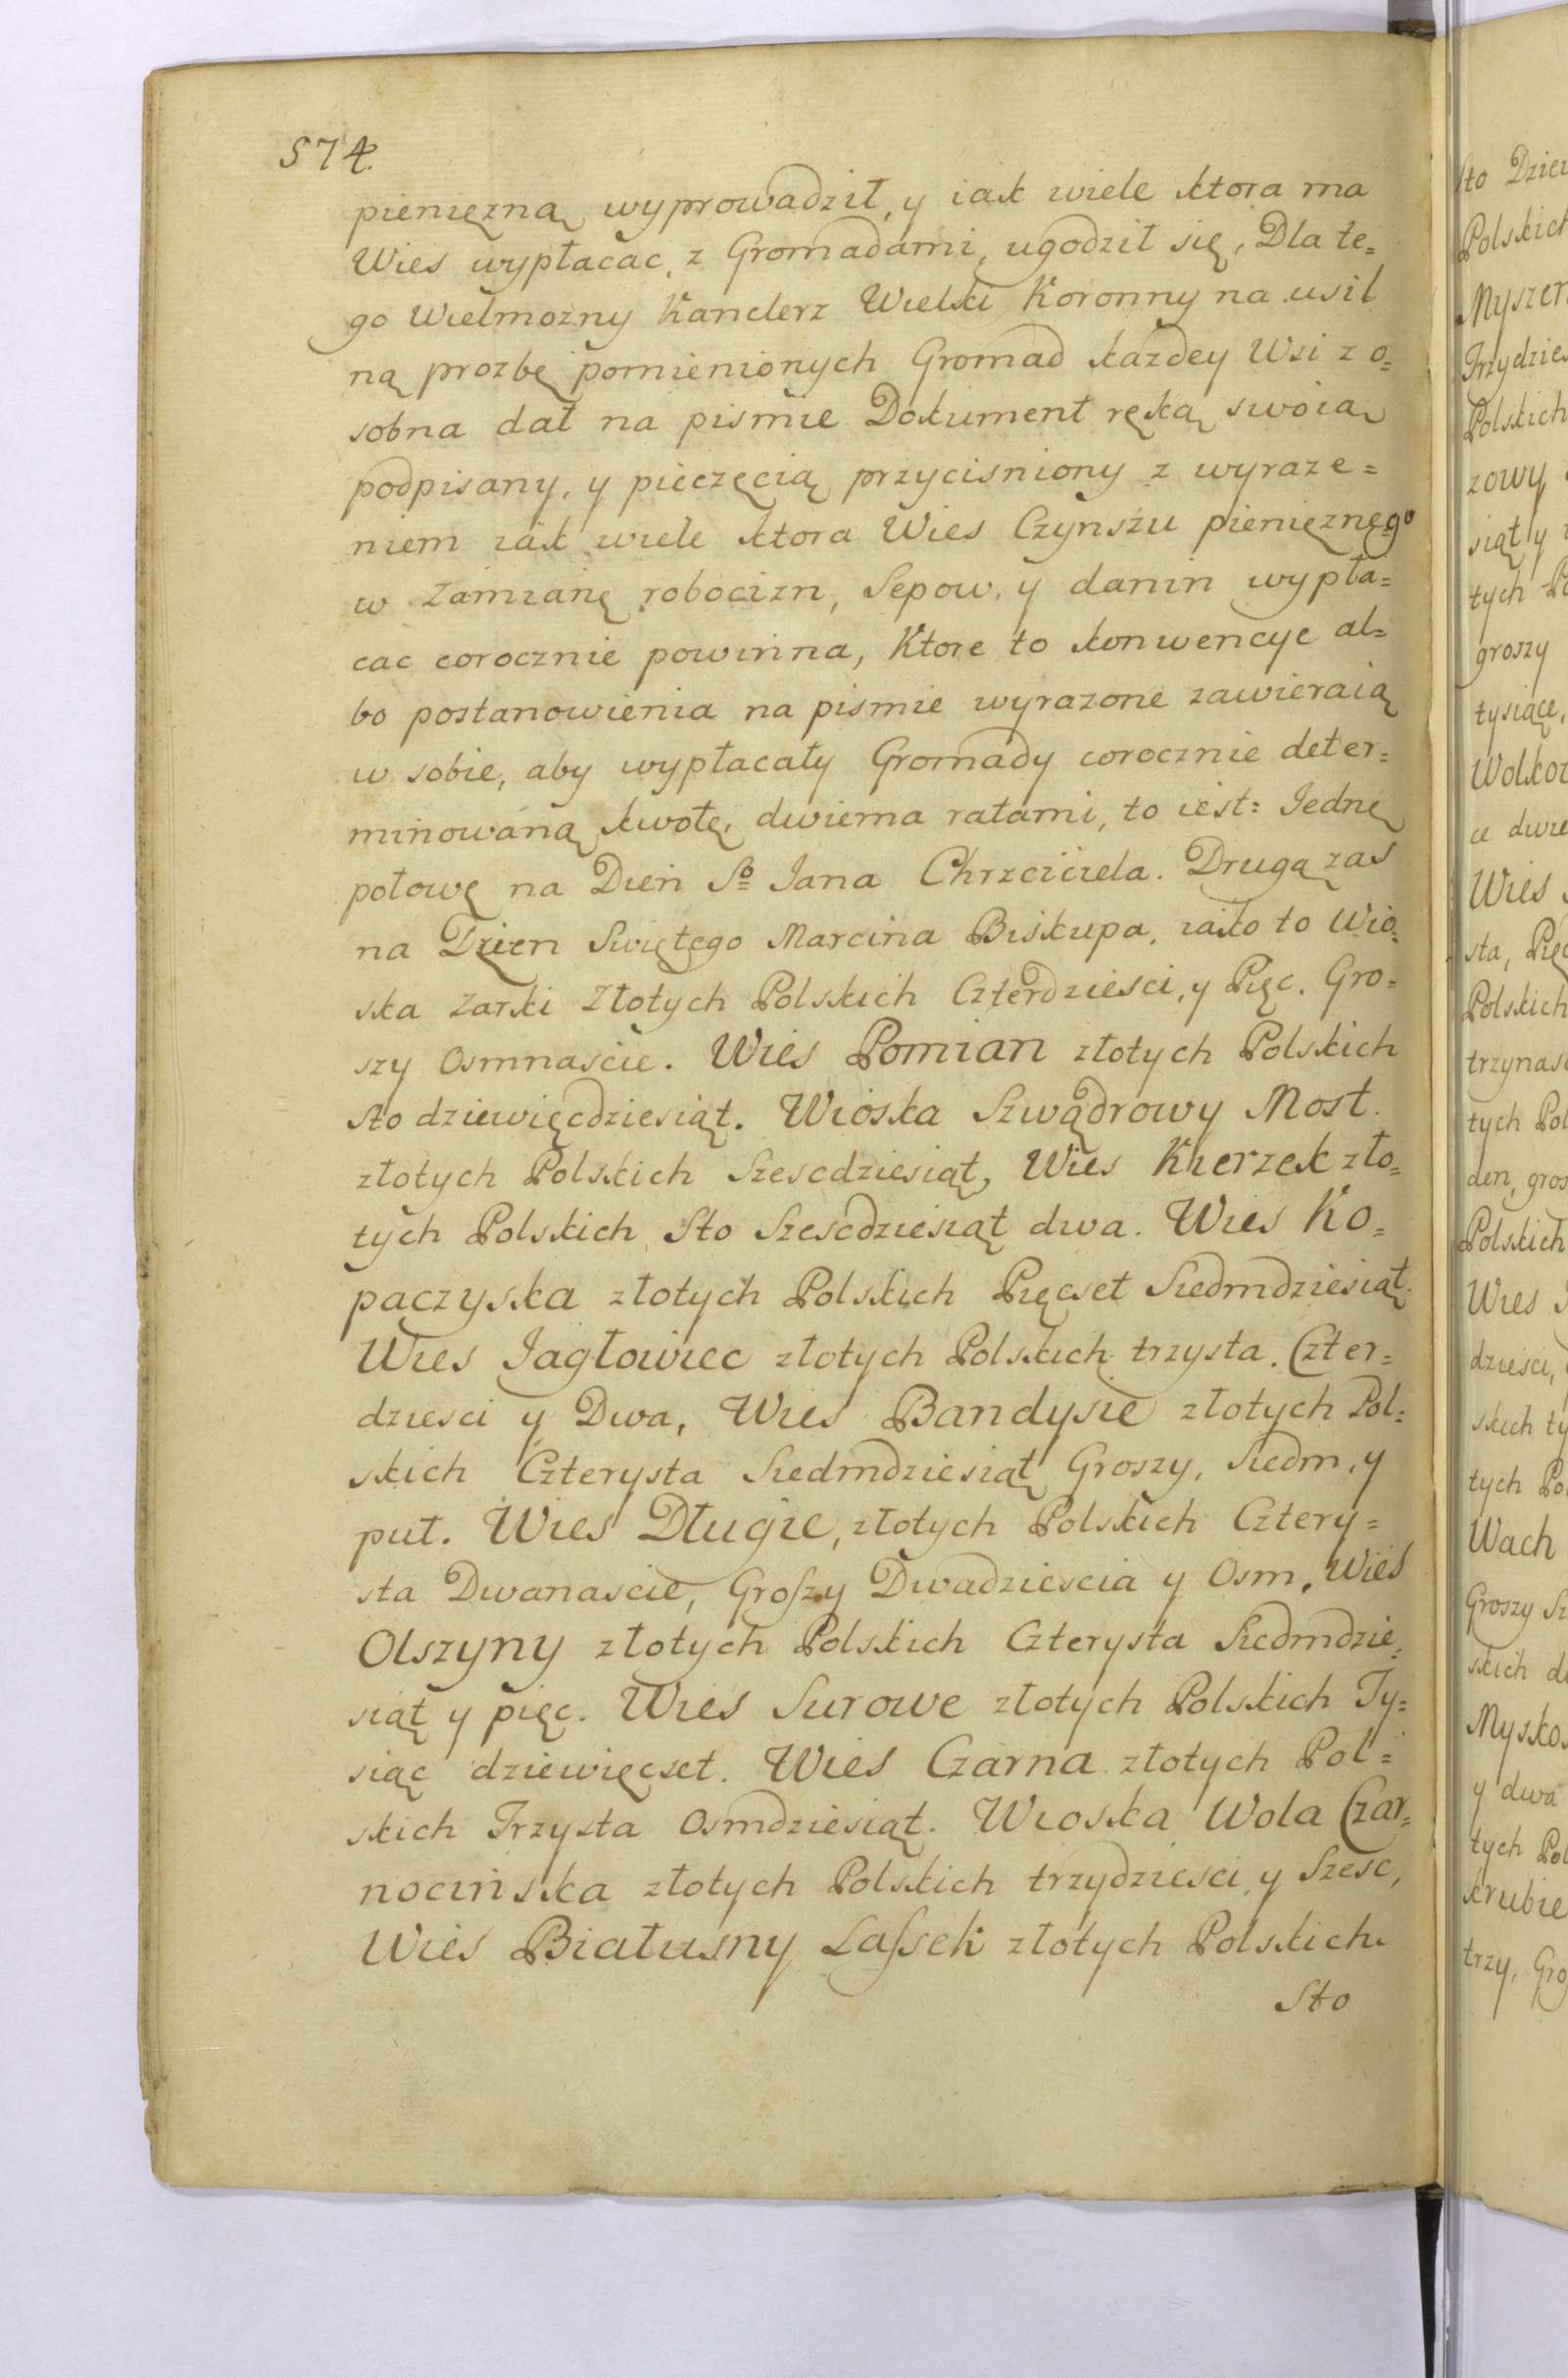 574.
pienięzną wyprowadził, y iak wiele ktora ma
Wies wypłacac, z Gromadami, ugodził się, Dla te=
go Wielmozny Kanclerz Wielki Koronny na usil
ną prozbę pomienionych Gromad kazdey Wsi z o=
sobna dał na pismie Dokument ręką swoią
podpisany, y pieczęcią przycisniony z wyraze=
niem iak wiele ktora Wies Czynszu pienięznego
w zamianę robocizn, Sepow, y danin wypła=
cac corocznie powinna, Ktore to konwencye al=
bo postanowienia na pismie wyrazone zawieraią
w sobie, aby wypłacały Gromady corocznie deter=
minowaną kwotę, dwiema ratami, to iest: Iednę
połowę na Dien So Iana Chrzciciela. Drugą zas
na Dzien Swiętego Marcina Biskupa, iako to Wio=
ska Zarki Złotych Polskich Czterdziesci, y Pięc. Gro=
szy Osmnascie. Wies Pomian złotych Polskich
sto dziewięcdziesiąt. Wioska Szwądrowy Most.
złotych Polskich Szescdziesiąt, Wies Kierzek zło=
tych Polskich Sto Szescdziesiąt dwa. Wies Ko=
paczyska złotych Polskich Pięcset Siedmdziesiąt.
Wies Jagłowiec złotych Polskich trzysta. Czter=
dziesci y Dwa, Wies Bandysie złotych Pol=
skich Czterysta Siedmdziesiąt Groszy, Siedm, y
puł. Wies Długie, złotych Polskich Cztery=
sta Dwanascie, Groſzy Dwadziescia y Osm, Wies
Olszyny złotych Polskich Czterysta Siedmdzie=
siąt y pięc. Wies Surowe złotych Polskich Ty=
siąc dziewięcset. Wies Czarna złotych Pol=
skich Trzysta Osmdziesiąt. Wioska Wola Czar=
nocinska złotych Polskich trzydziesci y Szesc,
Wies Białusny Laſsek złotych Polskich
Sto
sto
Polskich
Polskich
zowy
siąt y
tych
groszy
tysiące,
Wies
sta,
Polskich
tych Pol
den,
Polskich
Wies
dziesci,
skich
tych
Wach
Groszy
skich
y dwa
tych Pol
trzy,